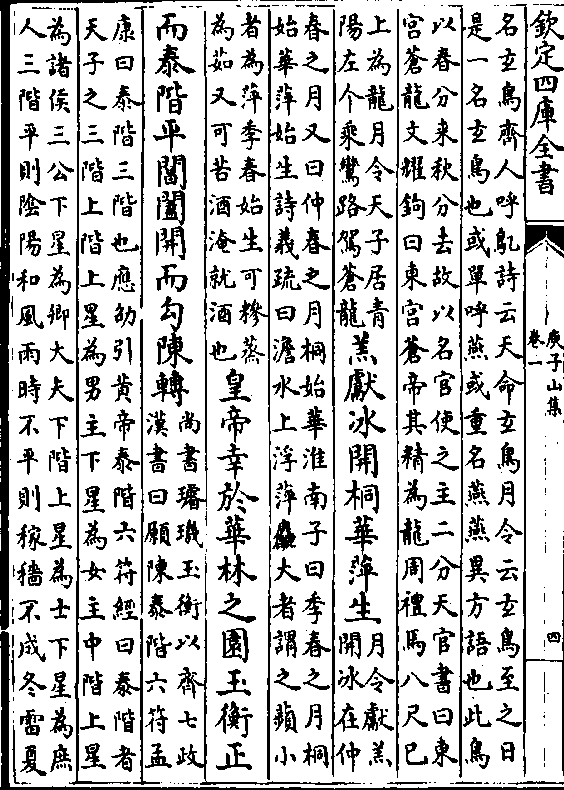 欽定四庫全書
庚子山集
卷一
四
名玄鳥齊人呼鳦詩云天命玄鳥月令云玄鳥至之日
是一名玄鳥也或單呼燕或重名燕燕異方語也此鳥
以春分来秋分去故以名官使之主二分天官書曰東
宫蒼龍文耀鉤曰東宫蒼帝其精為龍周禮馬八尺已
上為龍月令天子居青
陽左个乘鸞路駕蒼龍
羔獻冰開桐華萍生
月令獻羔
開冰在仲
春之月又曰仲春之月桐始華淮南子曰季春之月桐
始華萍始生詩義疏曰澹水上浮萍麤大者謂之蘋小
者為萍季春始生可糝蒸
為茹又可苦酒淹就酒也
皇帝幸於華林之園玉衡正
而泰階平閶闔開而勾陳轉
尚書璿璣玉衡以齊七政
漢書曰願陳泰階六符孟
康曰泰階三階也應劭引黄帝泰階六符經曰泰階者
天子之三階上階上星為男主下星為女主中階上星
為諸侯三公下星為卿大夫下階上星為士下星為庶
人三階平則陰陽和風雨時不平則稼穡不成冬雷夏